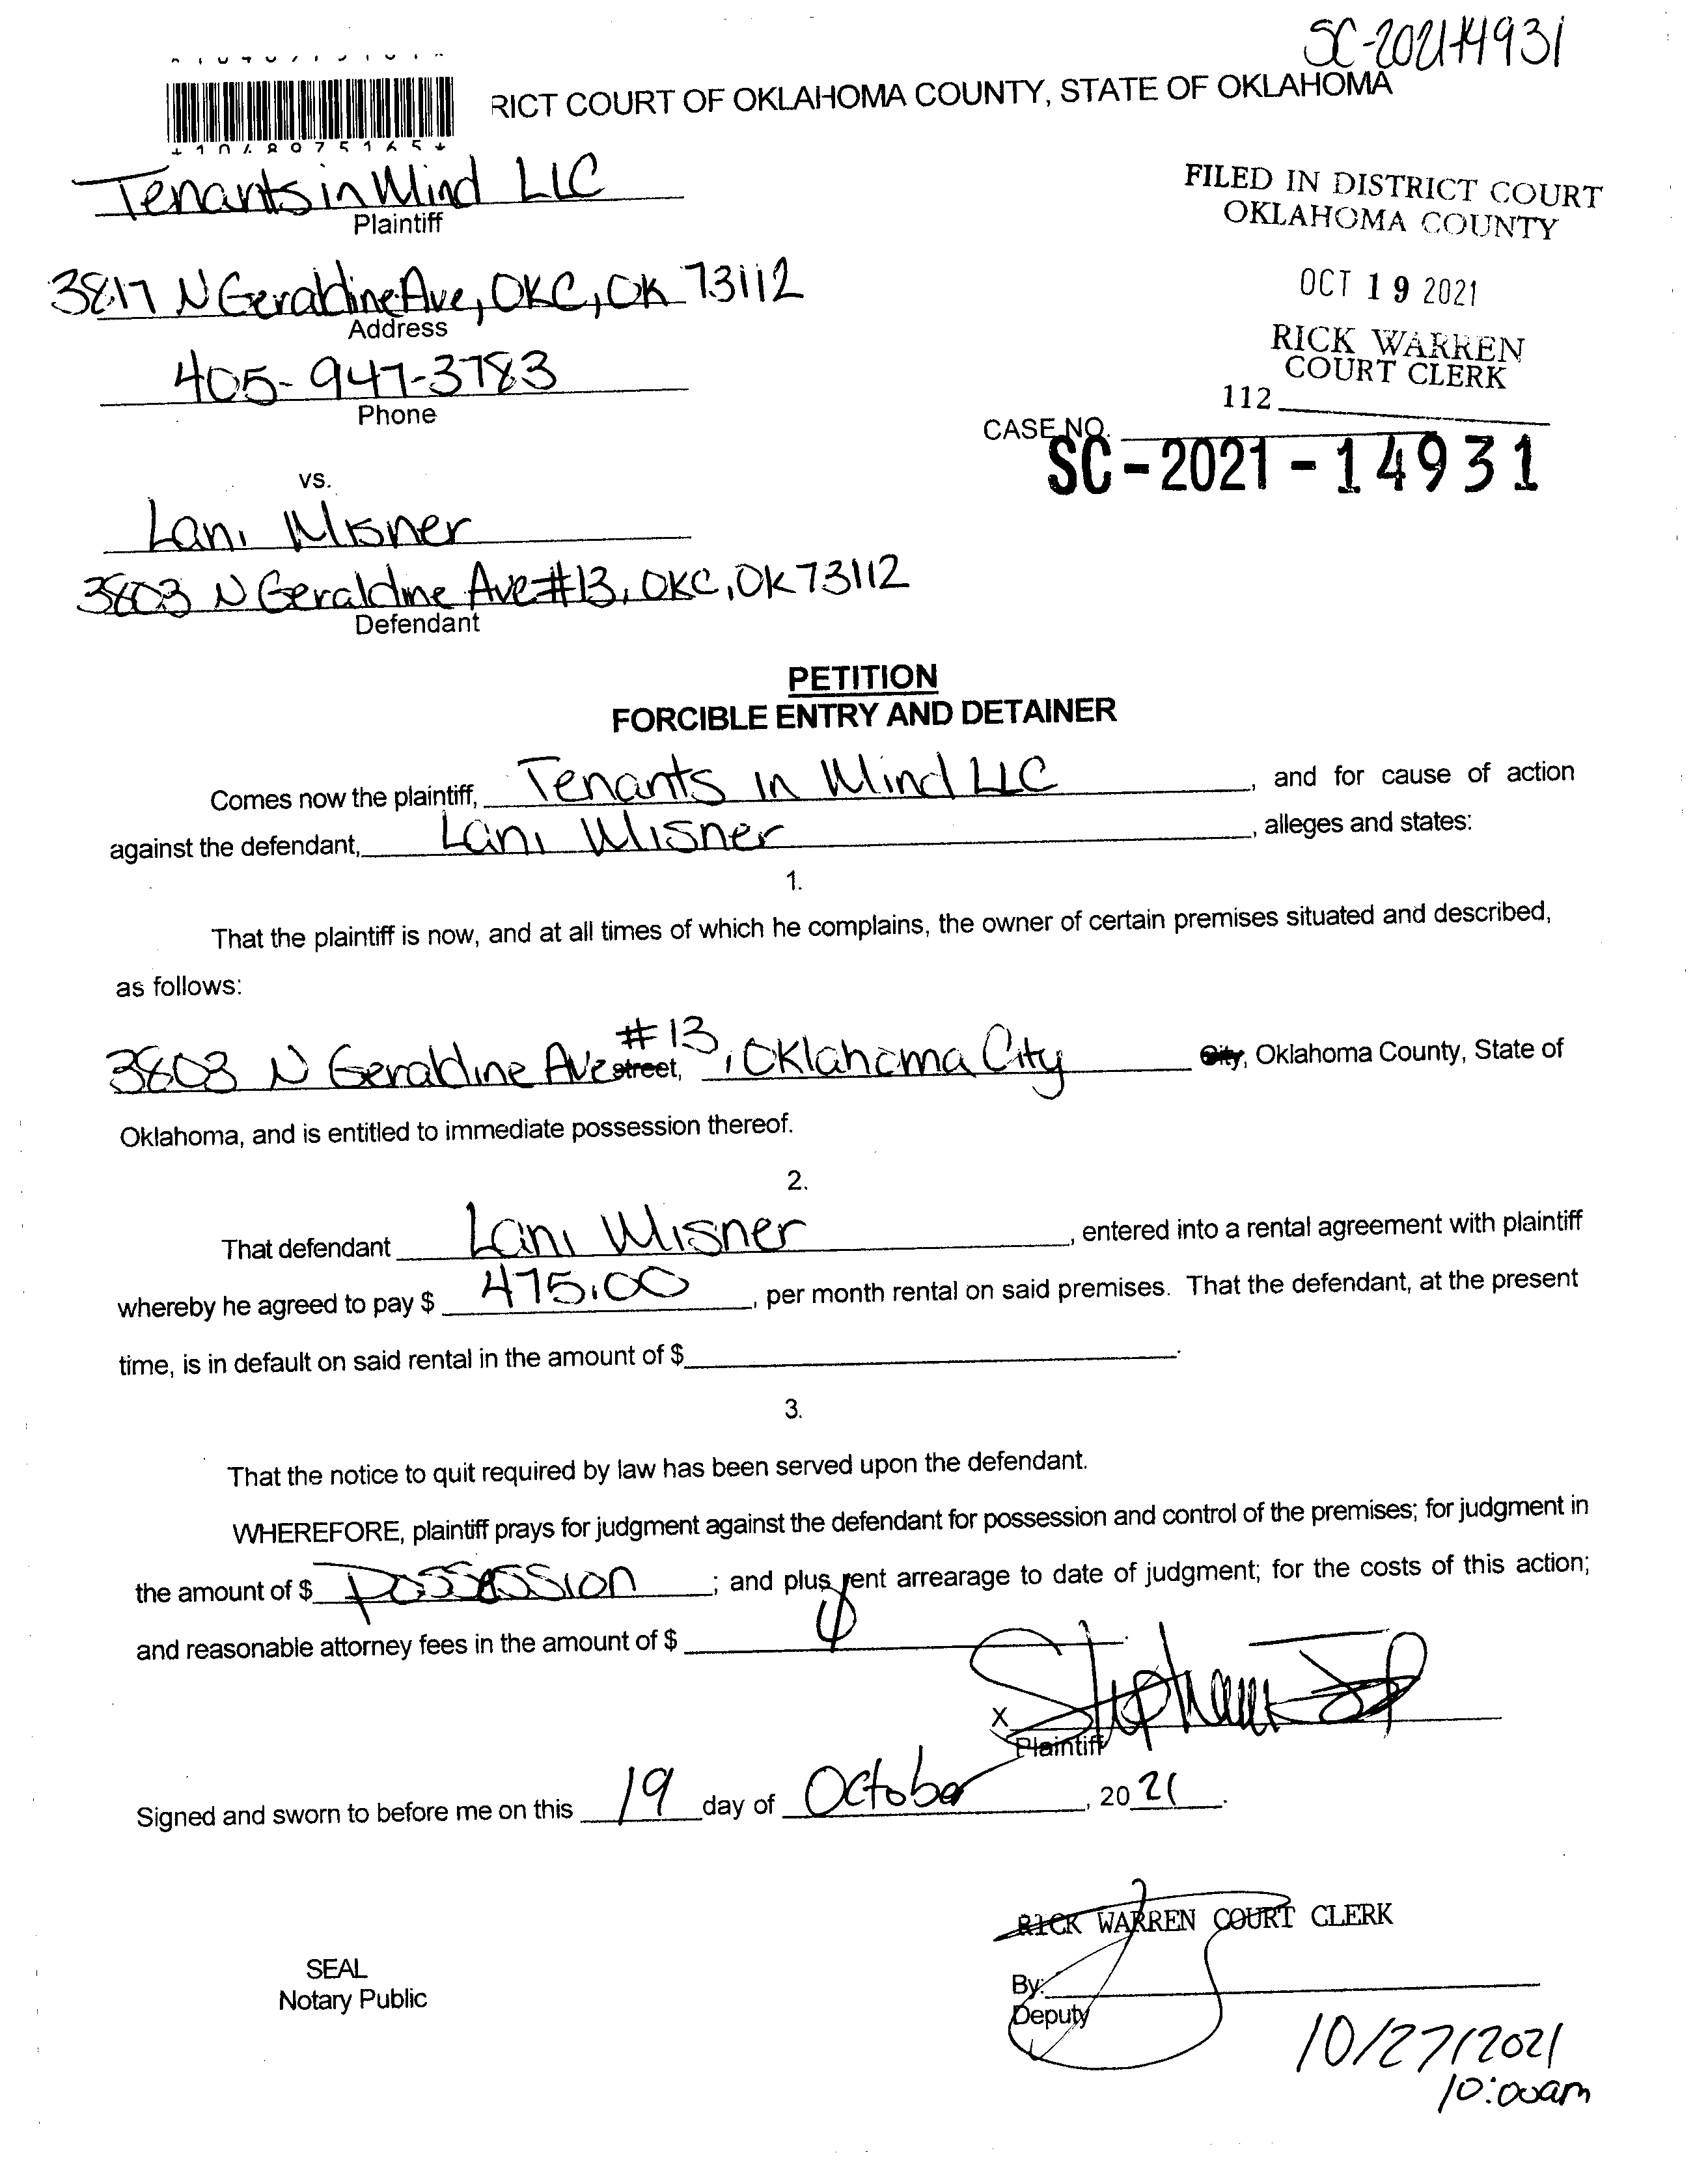 SC-2021-14931
RICT COURT OF OKLAHOMA COUNTY, STATE OF OKLAHOMA
Tenants in Mind LLC
Plaintiff
3817 N Geraldine Ave, OKC, OK 73112
Address
405-947-3783
Phone
FILED IN DISTRICT COURT
OKLAHOMA COUNTY
OCT 19 2021
RICK WARREN
COURT CLERK
112
CASE NO.
SC-2021-14931
vs.
Lani Misner
3803 N Geraldine Ave #13, OKC, OK 73112
Defendant
PETITION
FORCIBLE ENTRY AND DETAINER
Comes now the plaintiff, Tenants in Mind LLC, and for cause of action
against the defendant, Lani Misner, alleges and states:
1.
That the plaintiff is now, and at all times of which he complains, the owner of certain premises situated and described,
as follows:
3803 N Geraldine Ave #13 street, , Oklahoma City City, Oklahoma County, State of
Oklahoma, and is entitled to immediate possession thereof.
2.
That defendant Lani Misner, entered into a rental agreement with plaintiff
whereby he agreed to pay $ 475.00, per month rental on said premises. That the defendant, at the present
time, is in default on said rental in the amount of $ .
3.
That the notice to quit required by law has been served upon the defendant.
WHEREFORE, plaintiff prays for judgment against the defendant for possession and control of the premises; for judgment in
the amount of $ possession; and plus rent arrearage to date of judgment; for the costs of this action;
and reasonable attorney fees in the amount of $
X
Plaintiff
Signed and sworn to before me on this 19 day of October, 2021.
RICK WARREN COURT CLERK
SEAL
Notary Public
By:
Deputy
10/27/2021
10:00am